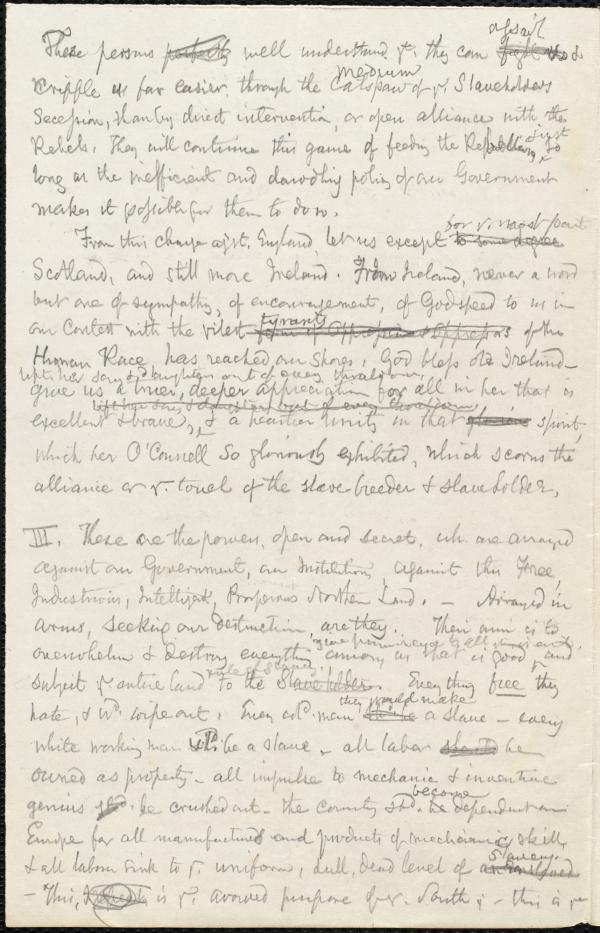 assail
These persons well understand yt. they can
cripple us far easier, through the medium Catspaw of ye. Slaveholders
Secession, than by direct intervention, or open alliance with the
Rebels. They will continue this game of feeding the Rebellion just so
long as the inefficient and dawdling policy of our Government
makes it possible for them to do so.
for ye. most part
From this charge agst. England, let us except to some degree
Scotland, and still more Ireland. From Ireland, never a word
but one of sympathy, of encouragement, of Godspeed to us in
tyrants
our Contest with the vilest form of Oppression & Oppressors of the
Human Race, has reached our Shores. God bless old Ireland –
lift her sons & daughters out of every thraldom,
give us a truer, deeper appreciation for all in her that is
lift her sons & daughters out of every thraldom,
excellent & brave, & a heartier unity in that glorious spirit,
which her O'Connell so gloriously exhibited, which scorns the
alliance or ye. touch of the slave-breeder & slaveholder.
III. These are the powers, open and secret, wh. are arrayed
against our Government, our Institutions, against this Free,
Industrious, Intelligent, Prosperous Northern Land. – Arrayed in
arms, seeking our destruction, are they. Their aim is to
give prominence to all that is evil,
overwhelm & destroy everything among us that is good, and
subject ye. entire land to the Slaveholder. Everything free they
they would make
hate, & wd. wipe out. Every cold. man a slave – every
white working man be a slave – all labor be
owned as property – all impulse to mechanic & inventive
become
genius be crushed out – the country shd. be dependent on
Europe for all manufactured and products of mechanic skill,
slavery.
& all labour sink to ye. uniform, dull, dead level of
– This, is ye. avowed purpose of ye. South; – this is ye